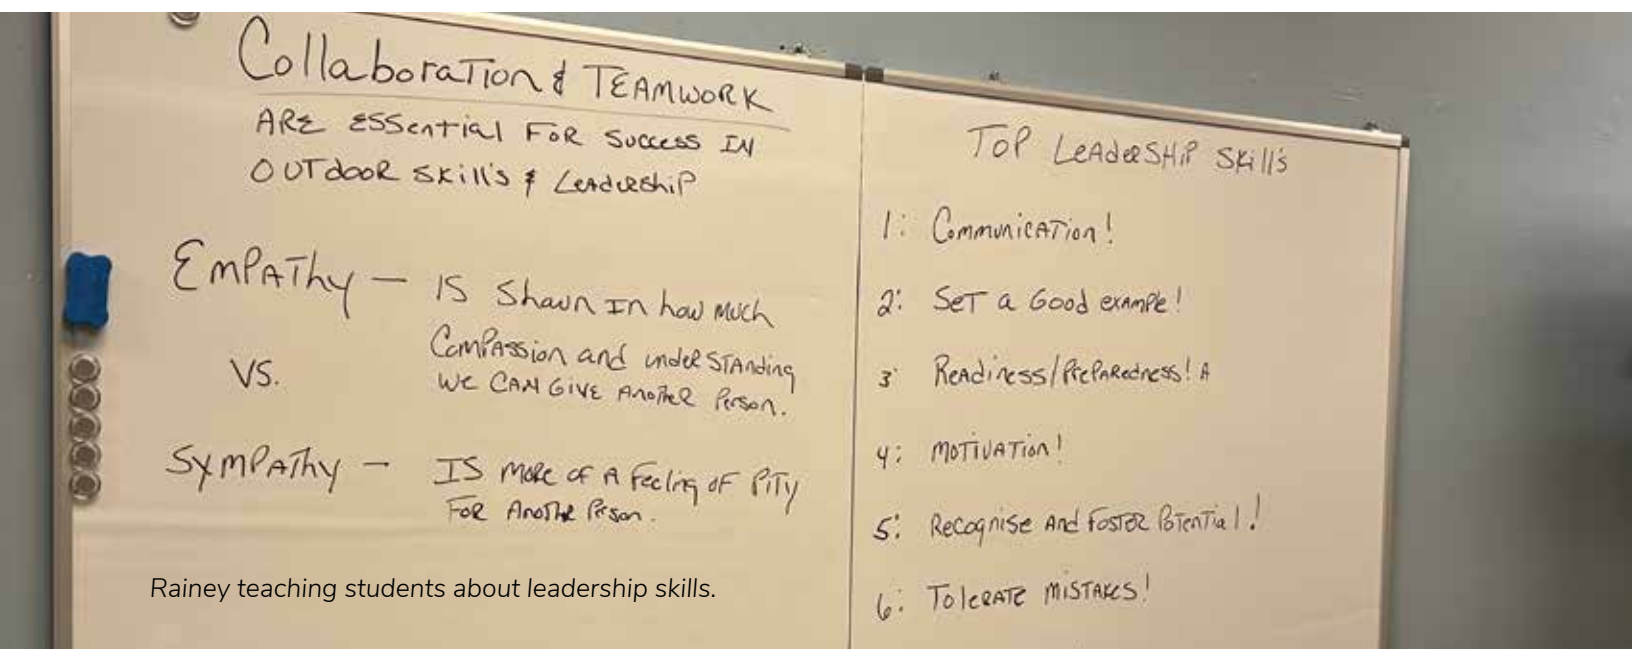 Collaboration & TEAMWORK
ARE ESSential FOR Success IN
OUTdOOR SKill's & LeadeRShiP
EmPAThy – IS Shown In how much
ComPAssion and undeRSTAnding
VS.
WE CAN GIVE AnoTheR Person.
SymPAThy – IS moRe oF A Feeling oF PiTy
FoR AnoTheR Person.
Rainey teaching students about leadership skills.
ToP LeAdeRSHiP Skill's
1: CommunicATion!
2: SeT a Good examPle!
3: ReAdiness/PrePARedness! A
4: MoTiVATion!
5: Recognise And FosTeR PoTenTial!
6: TolERATE MiSTAkes!